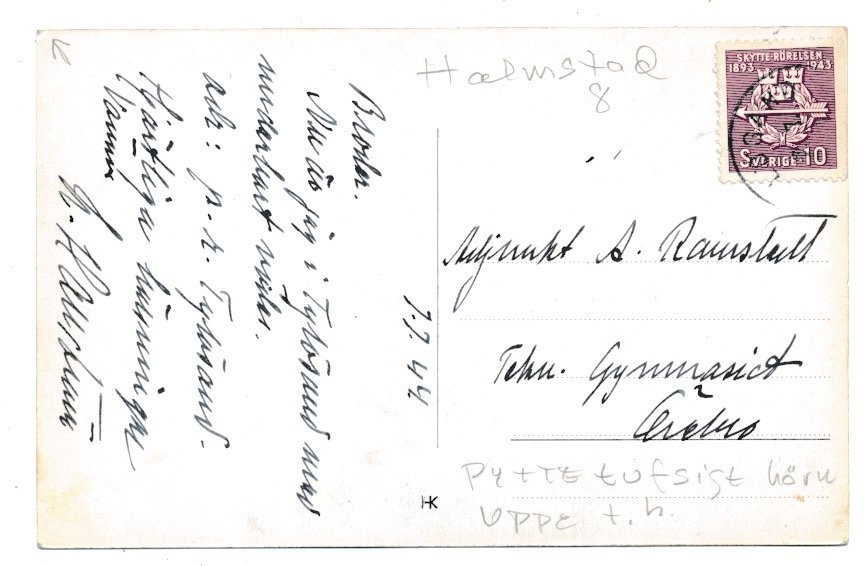 Halmstad
8
SKYTTE-RÖRELSEN
1893 1943
SVERIGE 10
Broder.
Nu är jag i Tylösand med
underbart väder.
adr: p.r. Tylösand.
Hjärtliga hälsningar
7.7.44
Adjunkt A. Ramstedt
Tekn. Gymnasiet
Örebro
Pytte tufsigt hörn
uppe t.h.
HK